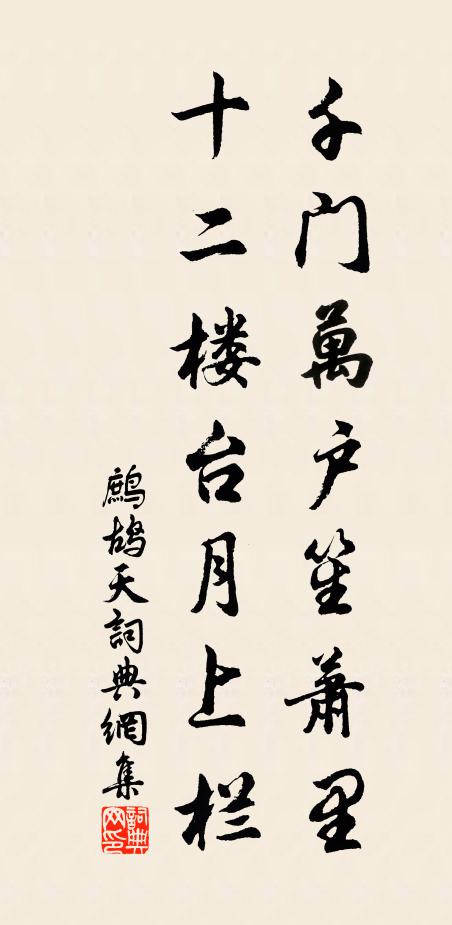 千门萬户笙萧里
十二楼台月上栏
鹧鸪天詞典網集
詞典网印